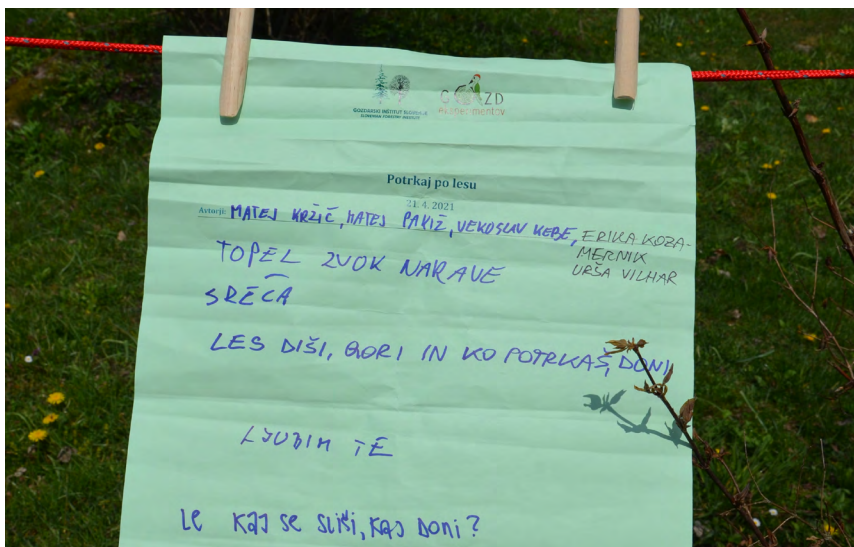 GOZDARSKI INŠTITUT SLOVENIJE
SLOVENIAN FORESTRY INSTITUTE
GOZD
eksperimentov
Potrkaj po lesu
21. 4. 2021
Avtorji: MATEJ KRŽIČ, MATEJ PAKIŽ, VEKOSLAV KEBE, ERIKA KOZA-
MERNIK
URŠA VILHAR
TOPEL ZVOK NARAVE
SREČA
LES DIŠI, GORI IN KO POTRKAŠ, DONI
LJUBIM TE
Le KAJ se SLIŠI, KAJ DONI?